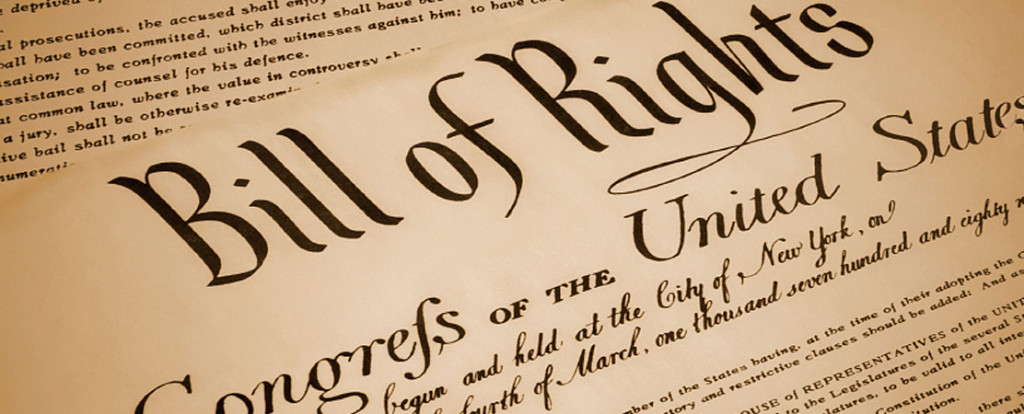 deprived of
al prosecutions, the accused shall enjoy
hall have been committed, which district shall have be
sation; to be confronted with the witnesses against him; to have co
ssistance of counsel for his defence.
t common law, where the value in controversy shall
a jury, shall be otherwise re-exami
ive bail shall not be
numerati
Bill of Rights
Congreſs OF THE United States
begun and held at the City of New York, on
fourth of March, one thousand seven hundred and eighty n
mber of the States having, at the time of their adopting the C
tory and restrictive clauses should be added: And as
OUSE of REPRESENTATIVES of the UNIT
the Legislatures of the several S
latures, to be valid to all inte
Constitution of the Uni